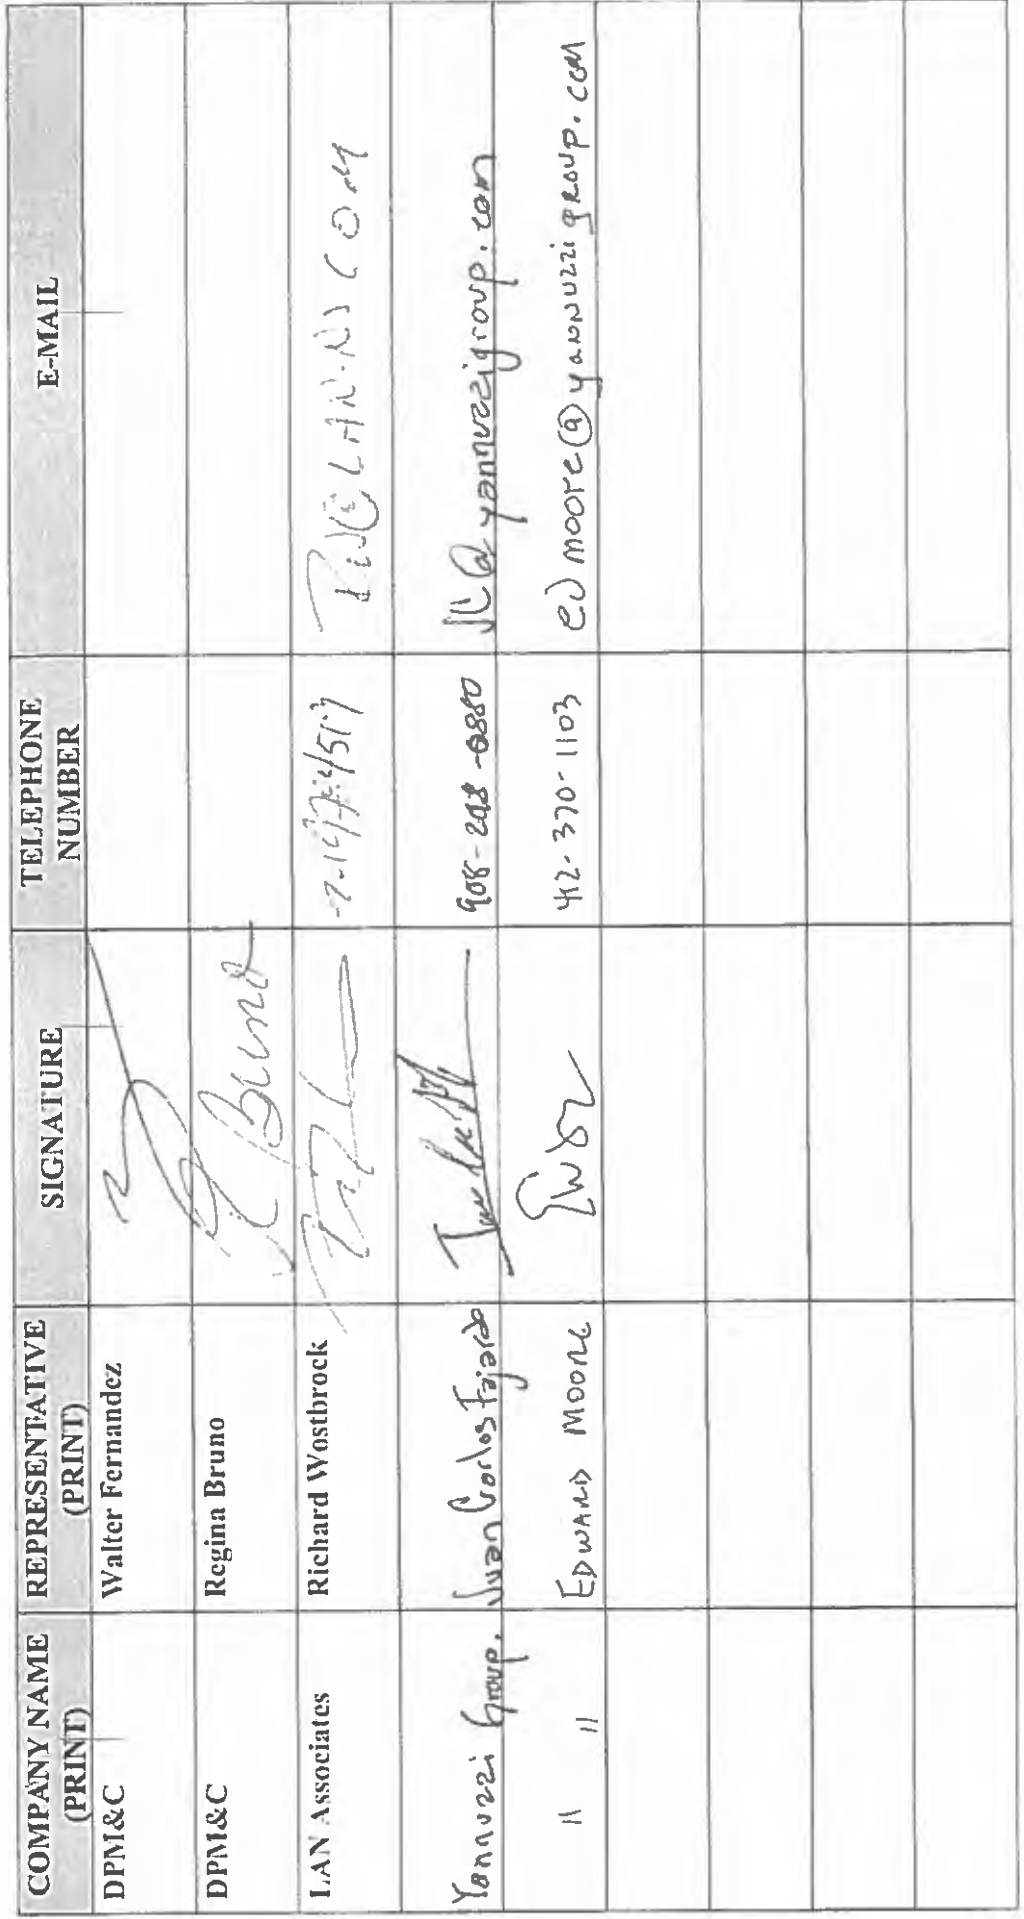 COMPANY NAME (PRINT) REPRESENTATIVE (PRINT) SIGNATURE TELEPHONE NUMBER E-MAIL
DPM&C Walter Fernandez
DPM&C Regina Bruno R Bruno
LAN Associates Richard Wostbrock
Yannuzzi Group. Juan Carlos Fajardo 908-218-0880 JC@yannuzzigroup.com
" " EDWARD MOORE 412-370-1103 edmoore@yannuzzigroup.com